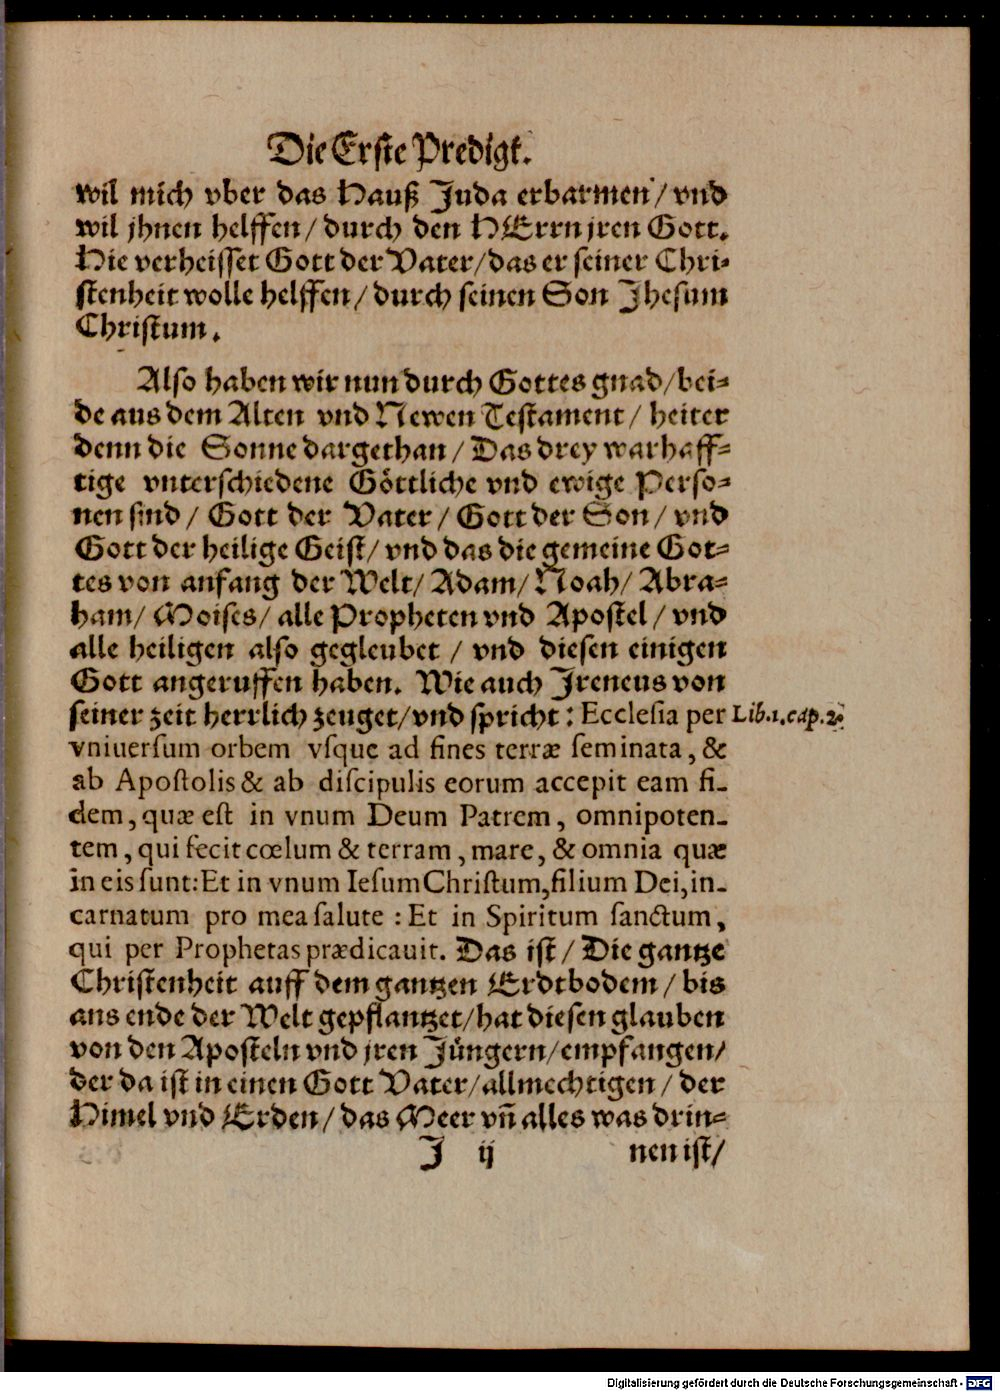 Die Erste Predigt.
wil mich vber das Hauß Juda erbarmen / vnd
wil jhnen helffen / durch den HErrn jren Gott.
Hie verheisset Gott der Vater / das er seiner Chri-
stenheit wolle helffen / durch seinen Son Jhesum
Christum.
Also haben wir nun durch Gottes gnad / bei-
de aus dem Alten vnd Newen Testament / heiter
denn die Sonne dargethan / Das drey warhaff-
tige vnterschiedene Göttliche vnd ewige Perso-
nen sind / Gott der Vater / Gott der Son / vnd
Gott der heilige Geist / vnd das die gemeine Got-
tes von anfang der Welt / Adam / Noah / Abra-
ham / Moises / alle Propheten vnd Apostel / vnd
alle heiligen also gegleubet / vnd diesen einigen
Gott angeruffen haben. Wie auch Ireneus von
seiner zeit herrlich zeuget / vnd spricht: Ecclesia per Lib.1.cap.2.
vniuersum orbem vsque ad fines terræ seminata, &
ab Apostolis & ab discipulis eorum accepit eam fi-
dem, quæ est in vnum Deum Patrem, omnipoten-
tem, qui fecit cœlum & terram, mare, & omnia quæ
in eis sunt: Et in vnum Iesum Christum, filium Dei, in-
carnatum pro mea salute : Et in Spiritum sanctum,
qui per Prophetas prædicauit. Das ist / Die gantze
Christenheit auff dem gantzen Erdtbodem / bis
ans ende der Welt gepflantzet / hat diesen glauben
von den Aposteln vnd jren Jüngern / empfangen /
der da ist in einen Gott Vater / allmechtigen / der
Himel vnd Erden / das Meer vñ alles was drin-
J ij nen ist /
Digitalisierung gefördert durch die Deutsche Forschungsgemeinschaft - DFG